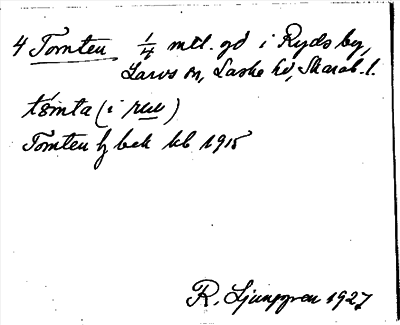 4 Tomten 1/4 mtl. gd i Ryds by,
Larvs sn, Laske hd, Skarab. l.
tómta (i
Tomten hj bek kb 1915
R. Ljunggren 1927